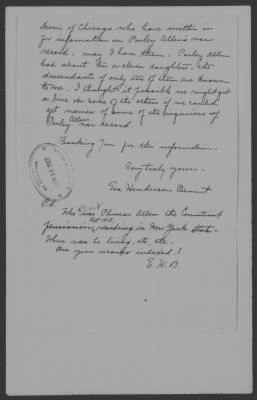 of Chicago who have written in
for information on Parley Allens war
record - may I have them. Parley Allen
had about ten or eleven daughters. The
descendants of only two of them are known
to me. I thought it possible we might get
a line on some of the others if we could
get names of some of the inquirers of
Parley Allen war record.
Thanking you for this information.
Very truly yours -
Eva Henderson Bement
P.S.
Who was Phineas Allen the Connecticut
pensioner, residing in New York State -
Where was he living, etc, etc.
Are your records indexed?
E. H. B